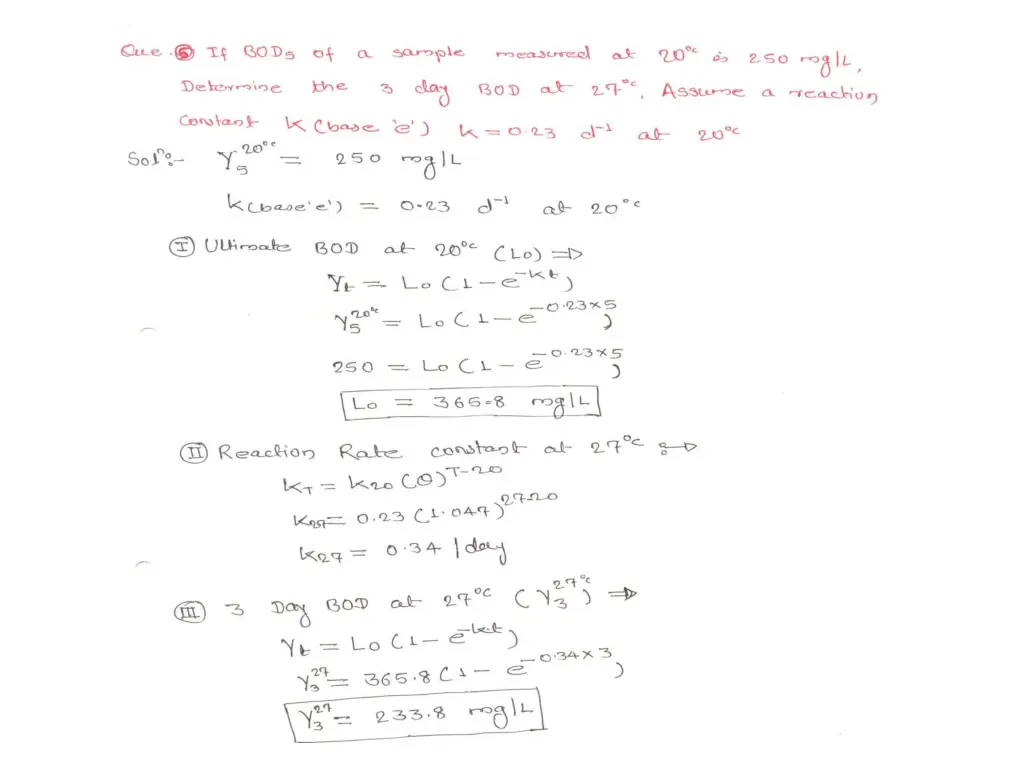 Que. ⑤ If BOD5 of a sample measured at 20°c is 250 mg/L,
Determine the 3 day BOD at 27°c. Assume a reaction
constant K (base 'e') K = 0.23 d⁻¹ at 20°c
Solⁿ:- Y₅²⁰°ᶜ = 250 mg/L
K(base'e') = 0.23 d⁻¹ at 20°c
Ⓘ Ultimate BOD at 20°c (Lo) ⇒
Yt = Lo (1 - e^-Kt)
Y₅²⁰°ᶜ = Lo (1 - e^-0.23×5)
250 = Lo (1 - e^-0.23×5)
Lo = 365.8 mg/L
Ⅱ Reaction Rate constant at 27°c :⇒
KT = K20 (θ)^T-20
K27 = 0.23 (1.047)^27-20
K27 = 0.34 /day
Ⅲ 3 Day BOD at 27°c (Y₃²⁷°ᶜ) ⇒
Yt = Lo (1 - e^-k.t)
Y₃²⁷ = 365.8 (1 - e^-0.34×3)
Y₃²⁷ = 233.8 mg/L